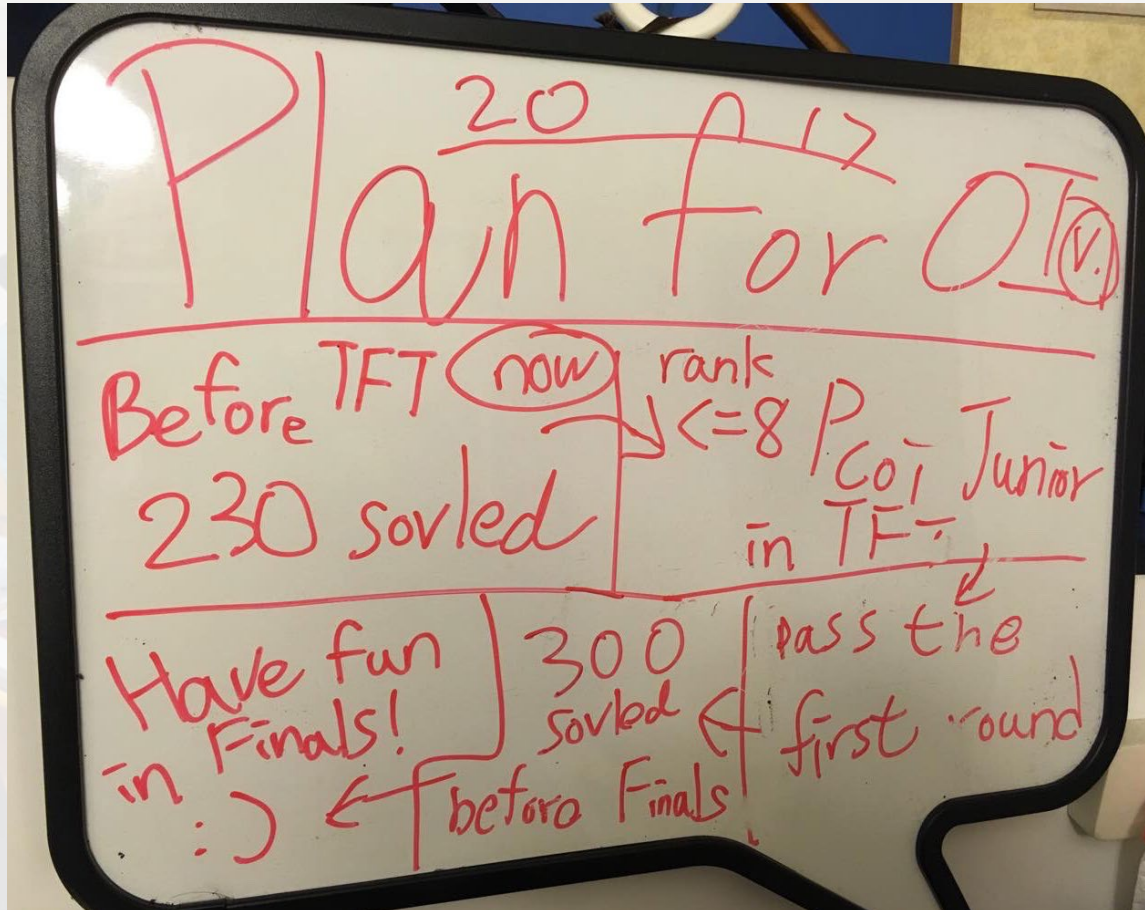 20 17
Plan for OI
v.
Before TFT now
230 sovled
rank
<=8 Pcoi Junior
in TFT
pass the
first round
300
sovled
before Finals
Have fun
in Finals!
:)